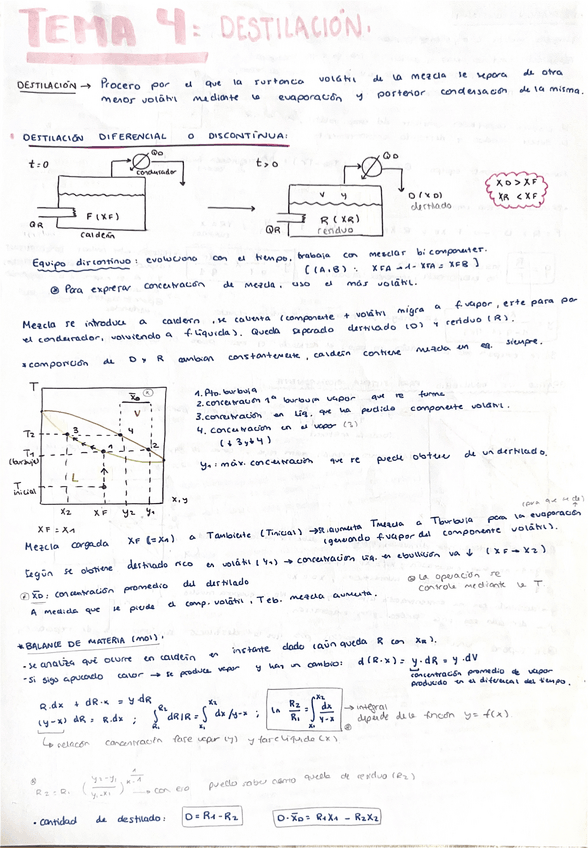 TEMA 4: DESTILACIÓN.
DESTILACIÓN → Proceso por el que la sustancia volátil de la mezcla se separa de otra
menos volátil mediante la evaporación y posterior condensación de la misma.
DESTILACIÓN DIFERENCIAL O DISCONTINUA:
t=0 QD condensador t>0 QD
F(XF) QR calderín
V y R(XR) residuo QR
D(XD) destilado
XD > XF
XR < XF
Equipo discontinuo: evoluciona con el tiempo, trabaja con mezclas bicomponentes.
[(A,B): XFA → 1-XFA = XFB]
Para expresar concentración de mezcla, uso el más volátil.
Mezcla se introduce a calderín, se calienta (componente + volátil migra a f.vapor, este pasa por
el condensador, volviendo a f.líquida). Queda separado destilado (D) y residuo (R).
*composición de D y R cambian constantemente, calderín contiene mezcla en eq. siempre.
T
T2
T1 (burbuja)
T inicial
x̄D V L 3 4 1 2
X2 XF y2 y1 x,y
XF = X1
1. Pto. burbuja
2. concentración 1ª burbuja vapor que se forme
3. concentración en liq. que ha perdido componente volátil.
4. concentración en el vapor (2)
(↓ 3 y ↓ 4)
y1: máx. concentración que se puede obtener de un destilado.
(para que se dé)
Mezcla cargada XF (=X1) a Tambiente (Tinicial) → R.aumenta Tmezcla a Tburbuja para la evaporación
(generando f.vapor del componente volátil).
Según se obtiene destilado rico en volátil (y1) → concentración liq. en ebullición va ↓ (XF → X2)
x̄D: concentración promedio del destilado
A medida que se pierde el comp. volátil, Teb. mezcla aumenta.
La operación se
controla mediante la T.
*BALANCE DE MATERIA (mol).
- se analiza qué ocurre en calderín en instante dado (aún queda R con XR).
- Si sigo aplicando calor → se produce vapor y hay un cambio: d(R·x) = y·dR = y·dV
concentración promedio de vapor
producido en el diferencial del tiempo.
R·dx + dR·x = y dR
(y-x) dR = R·dx ; ∫R1 R2 dR/R = ∫x1 x2 dx/y-x ; ln R2/R1 = ∫x1 x2 dx/y-x → integral
depende de la función y = f(x)
↳ relación concentración fase vapor (y) y fase líquido (x)
→ con eso puedo saber cómo queda de residuo (R2)
• cantidad de destilado: D = R1 - R2 D·x̄D = R1X1 - R2X2